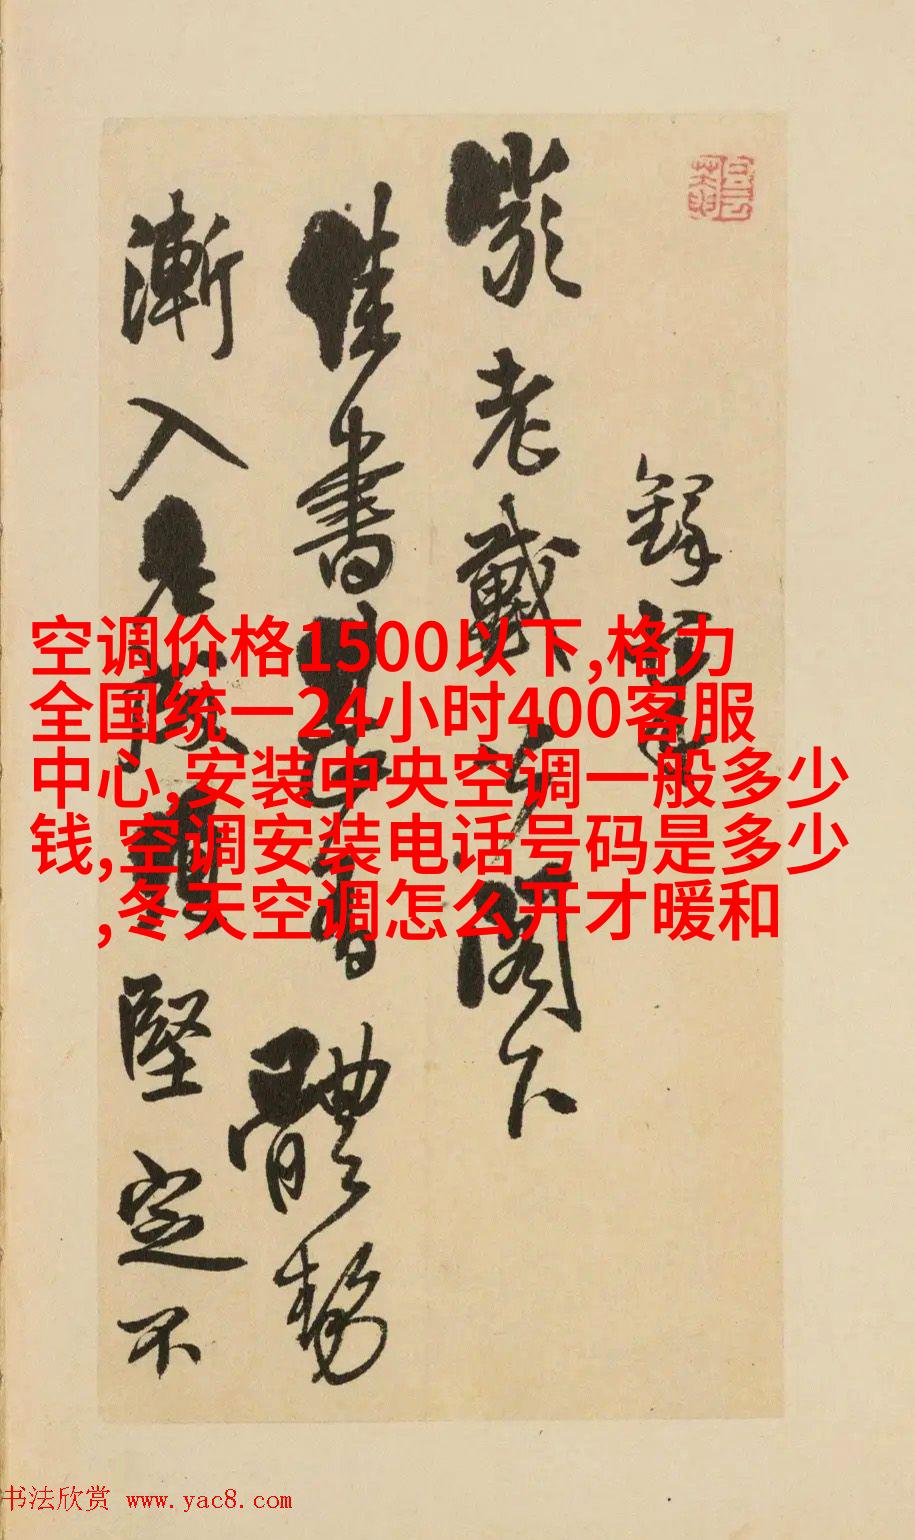 空调价格1500以下,格力
全国统一24小时400客服
中心,安装中央空调一般多少
钱,空调安装电话号码是多少
,冬天空调怎么开才暖和
鐸
老戴閣下
佳書書體勢
漸入堅定不
书法欣赏 www.yac8.com